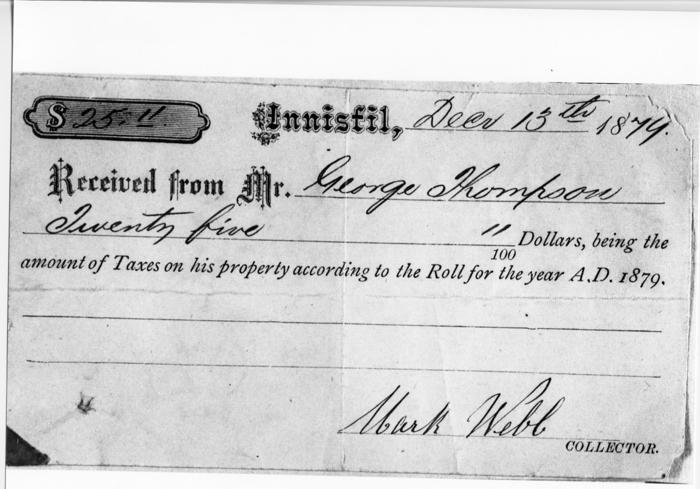 $ 25.11 Innisfil, Decr 13th 1879.
Received from Mr. George Thompson
Twenty five 11/100 Dollars, being the
amount of Taxes on his property according to the Roll for the year A.D. 1879.
Mark Webb
COLLECTOR.